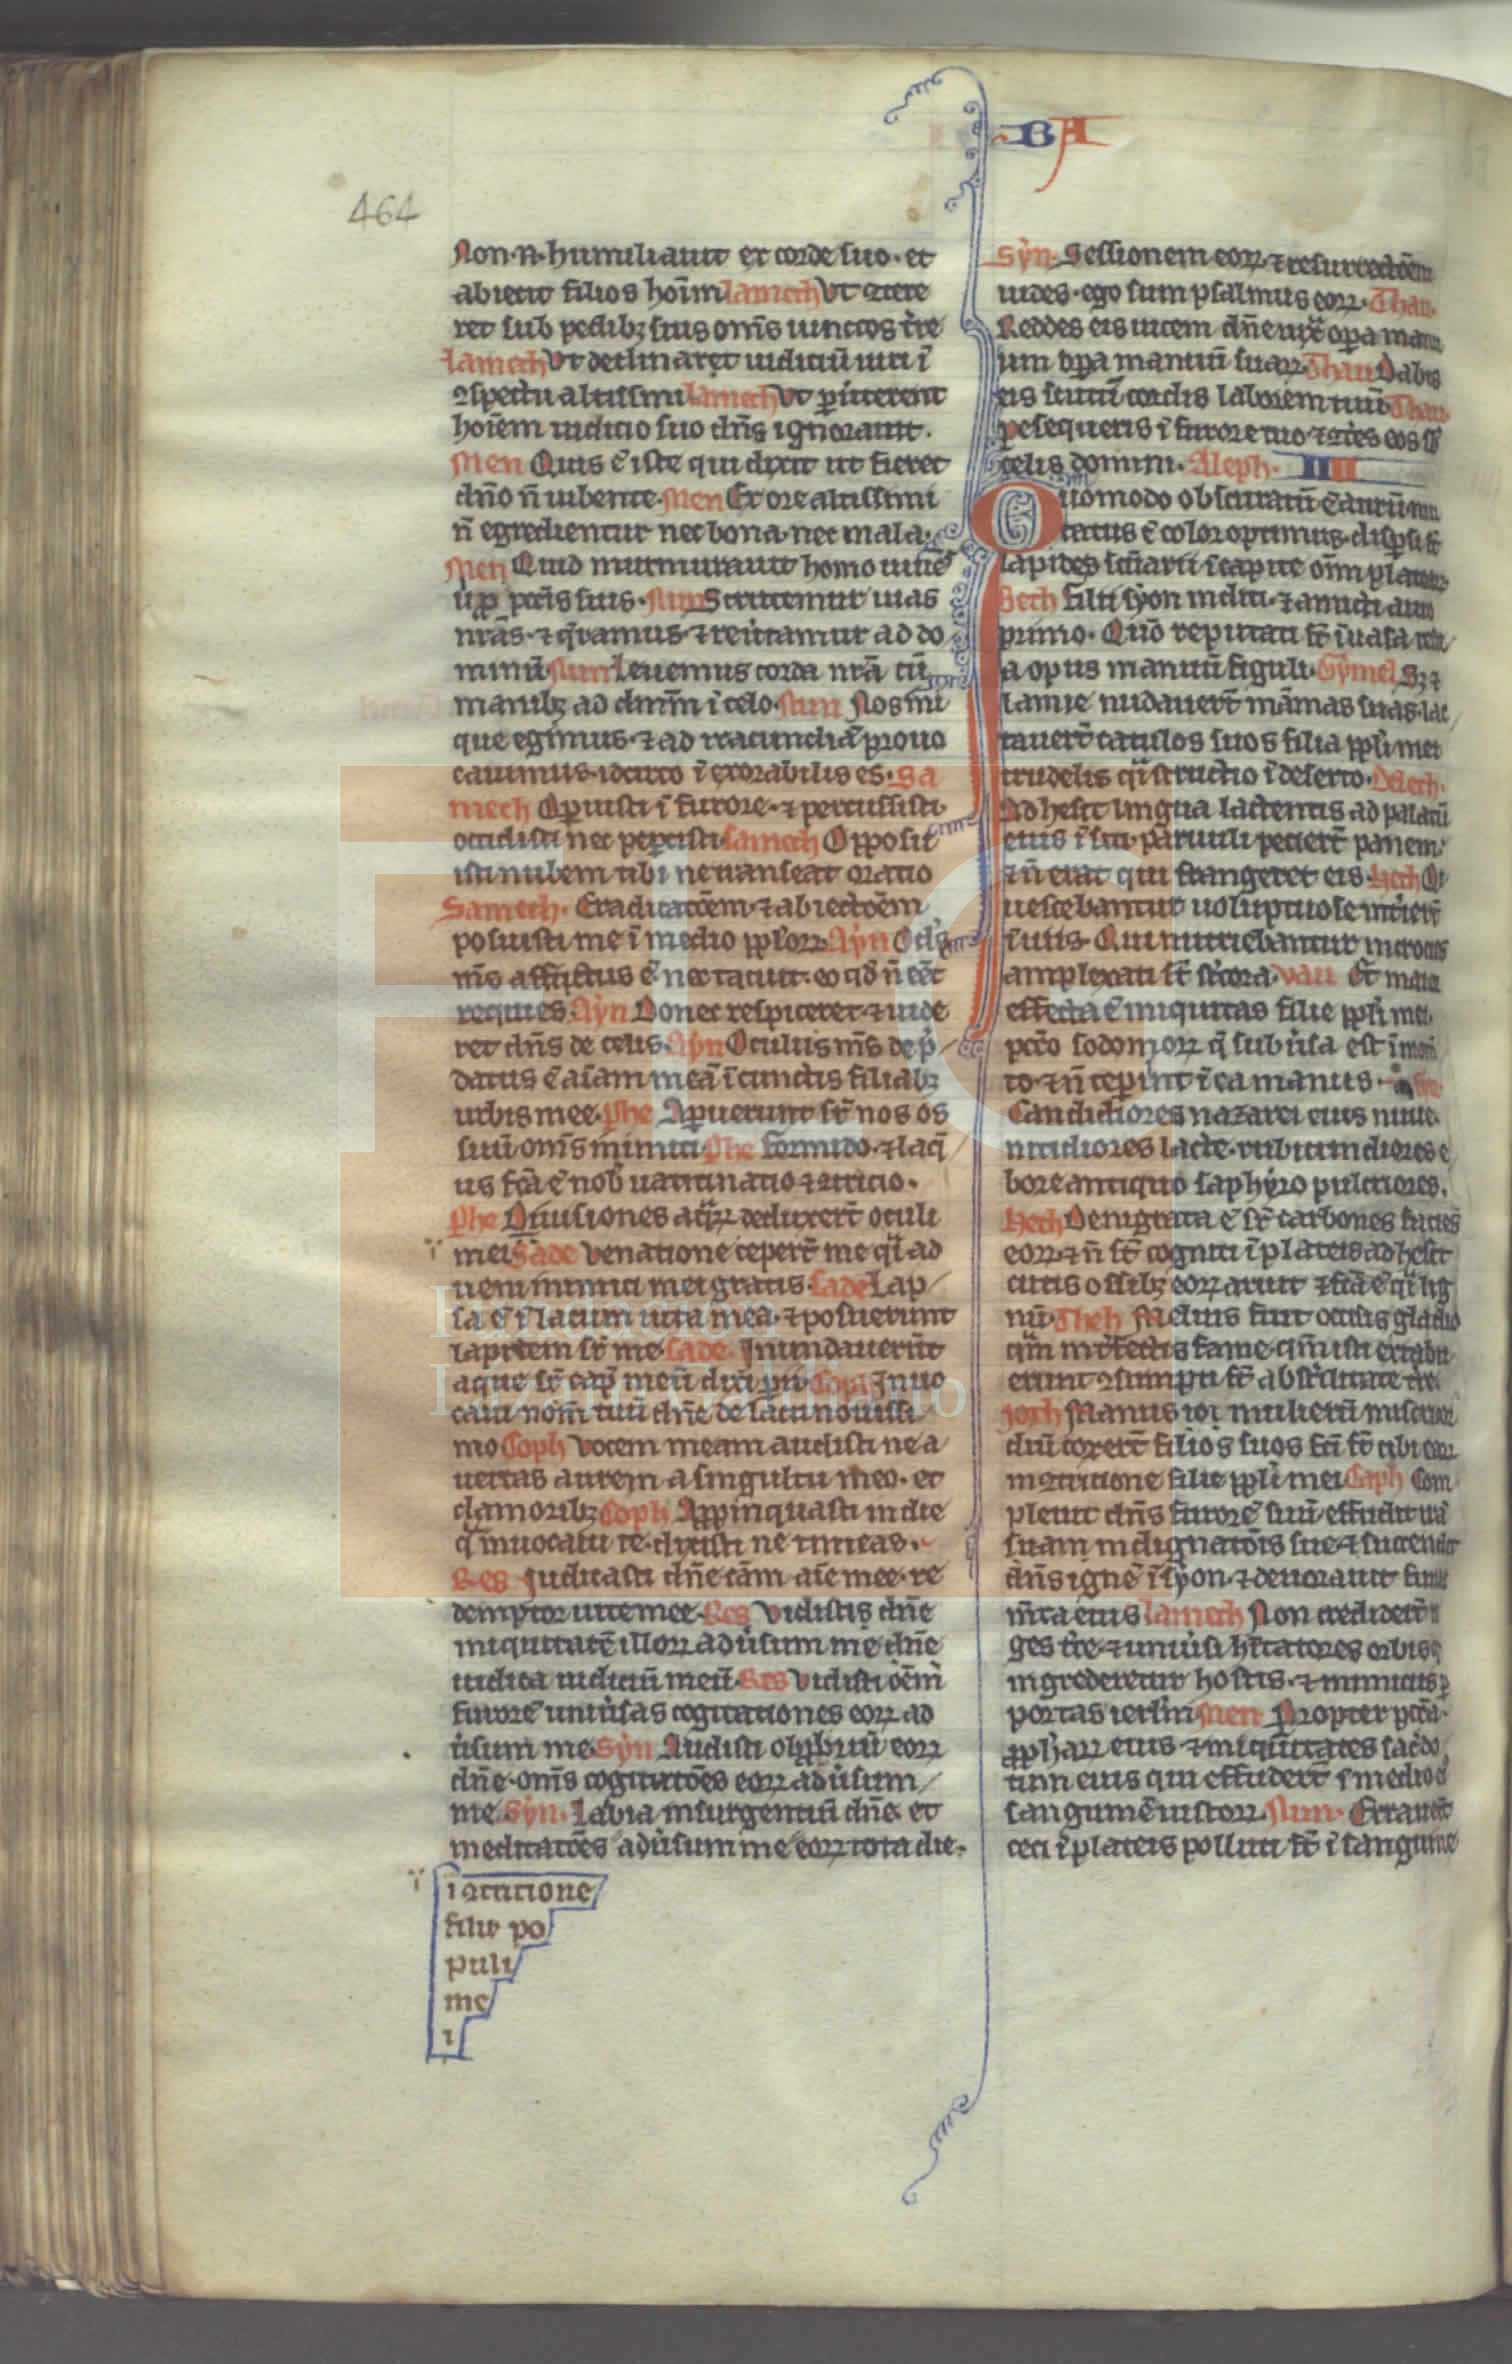 BA
464
Non .n. humiliauit ex corde suo . et
abiecit filios hoīm lamech Vt ɔtere
ret sub pedibꝫ suis om̄s uinctos t̄re
lamech Vt declinaret iudiciū uiri ī
ɔspectu altissimi lamech Vt ꝑuerterent
hoīem iudicio suo dn̄s ignorauit .
Men Quis ē iste qui dixit ut fieret
dn̄o n̄ iubente . Men Ex ore altissimi
n̄ egredientur nec bona . nec mala .
Men Quid murmurauit homo uiuēs
ꝓ pctīs suis . Nun Scrutemur uias
nr̄as . ⁊ q̄ramus ⁊ reūtamur ad do
minū . Nun Leuemus corda nr̄a cū
manibꝫ ad dn̄m ī celo . Nun Nos ini
que egimus . ⁊ ad iracundiā prouo
cauimus . idcirco ī exorabilis es . Sa
mech Oꝑuisti ī furore . ⁊ percussisti
occidisti nec peꝑcisti . Samech Opposu
isti nubem tibi ne transeat oratio
Samech . Eradicatōem . ⁊ abiectōem
posuisti me ī medio pplōꝝ . Ayn Ocl's
m̄s afflictus ē nec tacuit . eo qd̄ n̄ eēt
requies . Ayn Donec respiceret . ⁊ uide
ret dn̄s de celis . Ayn Oculus m̄s de p̄
datus ē aīam meā ī cunctis filiabꝫ
urbis mee . Phe Aꝑuerunt sr̄ nos os
suū om̄s inimici . Phe Formido . ⁊ laq̄
us fcā ē nob̄ uaticinatio ⁊ ɔtricio .
Phe Diuisiones aq̄ꝝ deduxerūt oculi
mei Sade Venatione ceperūt me q̄i ad
uem inimici mei gratis . Sade Lap
sa ē ī lacum uita mea . ⁊ posuerunt
lapidem sr̄ me . Sade . Inundauerūt
aque sr̄ cap̄ meū dixi ꝑii . Coph Inuo
caui nom̄ tuū dn̄e de lacu nouissi
mo Coph Vocem meam audisti ne a
uertas aurem a singultu meo . et
clamoribꝫ Coph Appinquasti in die
q̄ inuocaui te . dixisti ne timeas .
Res Iudicasti dn̄e cām aīe mee . re
demptor uite mee . Res Vidistis dn̄e
iniquitatē illoꝝ adūsum me dn̄e
iudica iudiciū meū . Res Vidisti oēm
furorē uniūsas cogitationes eoꝝ ad
ūsum me . Syn Audisti obprobriū eoꝝ
dn̄e . om̄s cogitatōes eoꝝ adūsum
me . Syn . Labia insurgentiū dn̄e et
meditatōes adūsum me eoꝝ tota die .
ī ɔtricione
filie po
puli
me
i
Syn . Sessionem eoꝝ . ⁊ resurrectōem
uides . ego sum psalmus eoꝝ . Thau .
Reddes eis uicem dn̄e iux̄ opera manu
um opera manuū suaꝝ . Thau Dabis
eis scutū cordis laborem tuū . Thau
ꝑsequeris ī furore tuo ⁊ ɔteres eos sb̄
celis domini . Aleph . IIII
Quomodo obscuratū ē aurū . mu
tatus ē color optimus . dispsi sūt
lapides scūarii ī capite oīm plateaꝝ
Beth Filii syon incliti . ⁊ amicti auro
primo . Quō reputati sūt ī uasa teste
a opus manuū figuli . Gymel Sꝫ ⁊
lamie nudauerūt māmas suas . lac
tauerūt catulos suos filia ppl̄i mei
crudelis q̄i structio ī deserto . Delech .
Adhesit lingua lactentis ad palatū
eius ī siti . paruuli petierūt panem
⁊ n̄ erat qui frangeret eis . Hech Qi
uescebantur uoluptuose int̄ierūt
ī uiis . Qui nutriebantur in croceis
amplexati sūt st̄cora . Vau Et maior
effecta ē iniquitas filie ppl̄i mei .
pctō sodomoꝝ q̄ subūsa est ī momē
to . ⁊ n̄ ceperunt ī ea manus .
Candidiores nazarei eius niue .
nitidiores lacte . rubicundiores e
bore antiquo saphyro pulcriores .
Hech Denigrata ē sr̄ carbones facies
eoꝝ ⁊ n̄ sūt cogniti ī plateis adhesit
cutis ossibꝫ eoꝝ aruit ⁊ fcā ē q̄i lig
nū . Theh Melius fuit occisis gladio
q̄m int̄fectis fame . qm̄ isti extabu
erunt ɔsumpti sūt ab st̄ilitate t̄re
Joth Manus
diū coxerūt filios suos fcī sūt cibi eoꝝ
in ɔtritione filie ppl̄i mei Caph Com
pleuit dn̄s furorē suū effudit irā
suam indignatōis sue . ⁊ succendit
dn̄s ignē ī syon . ⁊ deuorauit funda
m̄ta eius lamech Non crediderūt re
ges t̄re . ⁊ uniūsi h̄itatores orbis q̄
ingrederetur hostis . ⁊ inimicus ꝑ
portas ierl̄m Men Propter pctā .
ꝓphaꝝ eius ⁊ iniquitates sacdo
tum eius qui effuderūt ī medio ei
sanguinē iustoꝝ . Nun . Errauerūt
ceci ī plateis polluti sūt ī sanguine